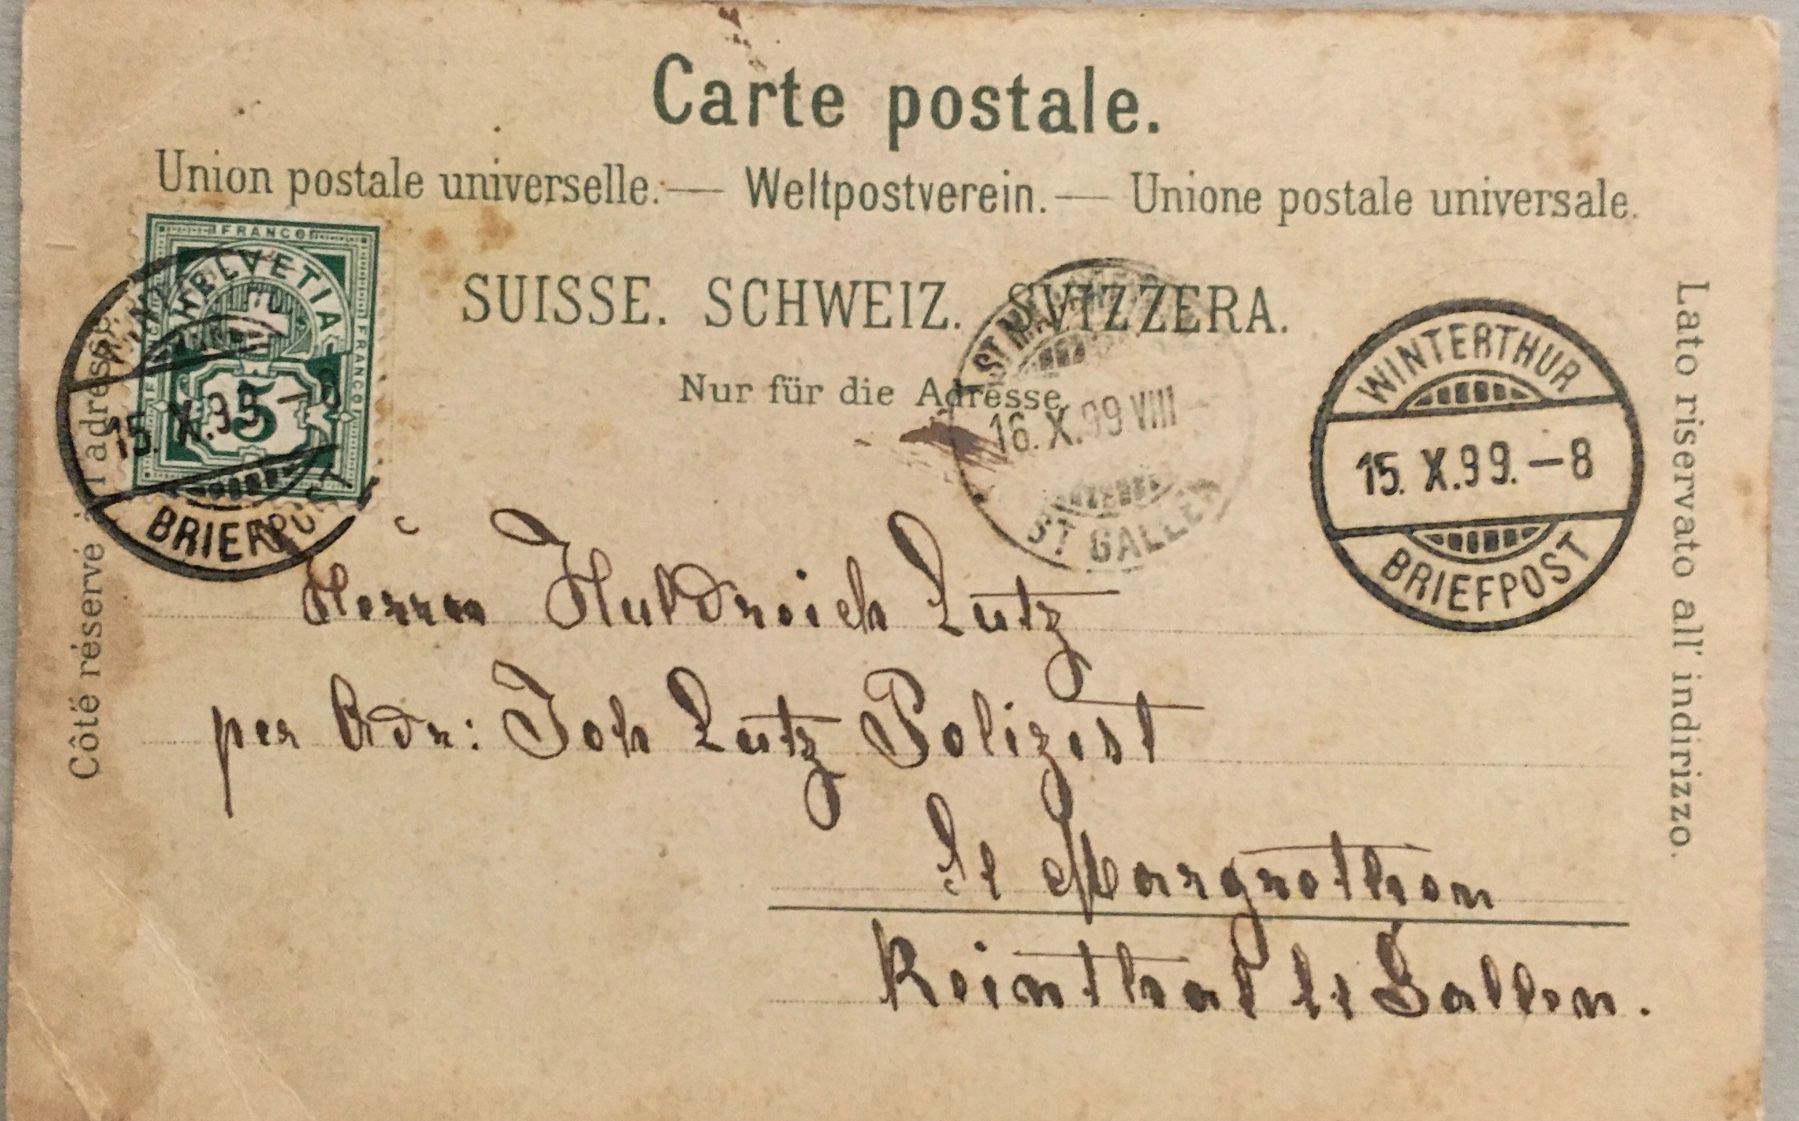 Carte postale.
Union postale universelle. — Weltpostverein. — Unione postale universale.
SUISSE. SCHWEIZ. SVIZZERA.
Nur für die Adresse.
Côté réservé à l'adresse.
Lato riservato all' indirizzo.
FRANCO
HELVETIA
FRANCO
5
15. X. 99. – 8
BRIEFPOST
16. X. 99 VIII
ST. GALLEN
WINTERTHUR
15. X. 99. – 8
BRIEFPOST
Herrn Huldreich Lutz
per Adr: Joh Lutz Polizist
St Margrethen
Reinthal kt Gallen.